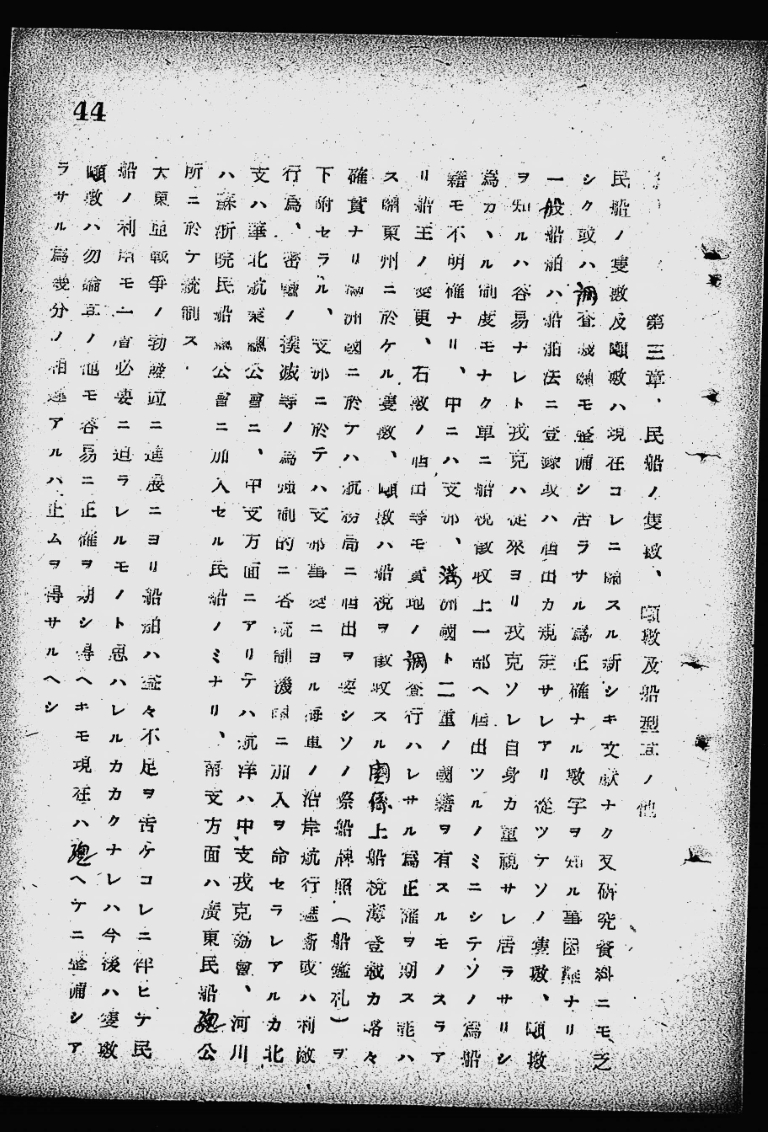 44
第三章、民船ノ隻数、噸数及船型其ノ他
民船ノ隻数及噸数ハ現在コレニ関スル新シキ文献ナク又研究資料ニモ乏
シク或ハ調査機関モ整備シ居ラサル為正確ナル数字ヲ知ル事困難ナリ
一般船舶ハ船舶法ニ登録或ハ届出カ規定サレアリ従ツテソノ隻数、噸数
ヲ知ルハ容易ナレト戎克ハ従来ヨリ戎克ソレ自身カ重視サレ居ラサリシ
為カヽル制度モナク単ニ船税徴収上一部ヘ届出ツルノミニシテソノ為船
籍モ不明確ナリ、中ニハ支那、満洲國ト二重ノ國籍ヲ有スルモノスラア
リ船主ノ変更、石数ノ届出等モ實地ノ調査行ハレサル為正確ヲ期ス能ハ
ス關東州ニ於ケル隻数、噸数ハ船税ヲ徴収スル関係上船税簿登載カ略々
確實ナリ満洲國ニ於テハ航務局ニ届出ヲ要シソノ際船牌照(船鑑札)ヲ
下附セラル、支那ニ於テハ支那事変ニヨル海軍ノ沿岸航行遮断或ハ利敵
行為、密輸ノ撲滅等ノ為強制的ニ各統制機関ニ加入ヲ命セラレアルカ北
支ハ華北航業總公會ニ、中支方面ニアリテハ航洋ハ中支戎克協會、河川
ハ蘇浙皖民船總公會ニ加入セル民船ノミナリ、南支方面ハ廣東民船總公
所ニ於テ統制ス
大東亜戦争ノ勃発並ニ進展ニヨリ船舶ハ益々不足ヲ告ケコレニ伴ヒテ民
船ノ利用モ一層必要ニ迫ラレルモノト思ハレルカカクナレハ今後ハ隻数
噸数ハ勿論其ノ他モ容易ニ正確ヲ期シ得ヘキモ現在ハ總ヘテニ整備シア
ラサル為幾分ノ相違アルハ止ムヲ得サルヘシ